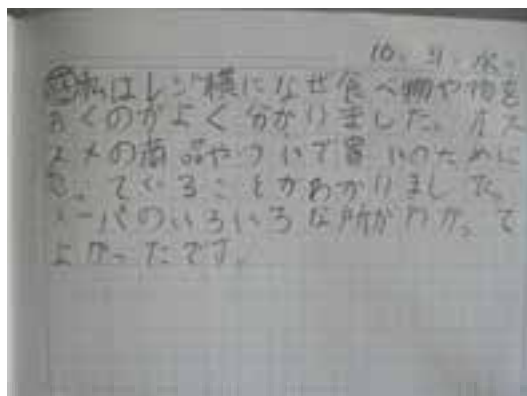 10. 9. 水.
私はレジ横になぜ食べ物や物を
おくのかよく分かりました。オス
スメの商品やついで買いのために
っていることがわかりました。
ーパのいろいろな所がわかって
よかったです。